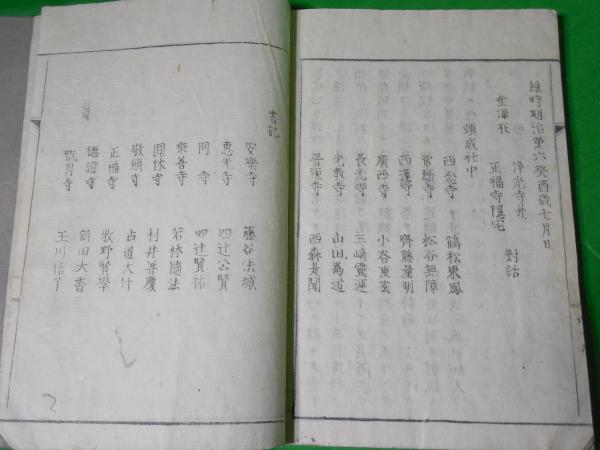 維時明治第六癸酉歳七月日
金澤在
浄光寺井
正福寺隠宅
對話
蟻成社中
西念寺 鶴松東鳳
常福寺 松谷無障
西蓮寺 齊藤量明
廣西寺 小谷東玄
長光寺 三崎靈運
光教寺 山田為道
晋現寺 西森走聞
書記
安樂寺 藤谷法城
恵光寺 四辻公賢
同寺 四辻賢祐
來善寺 若林随法
圓休寺 村井善慶
敬願寺 古道大什
正福寺 牧野賢學
徳證寺 新田大香
觀月寺 玉川信了